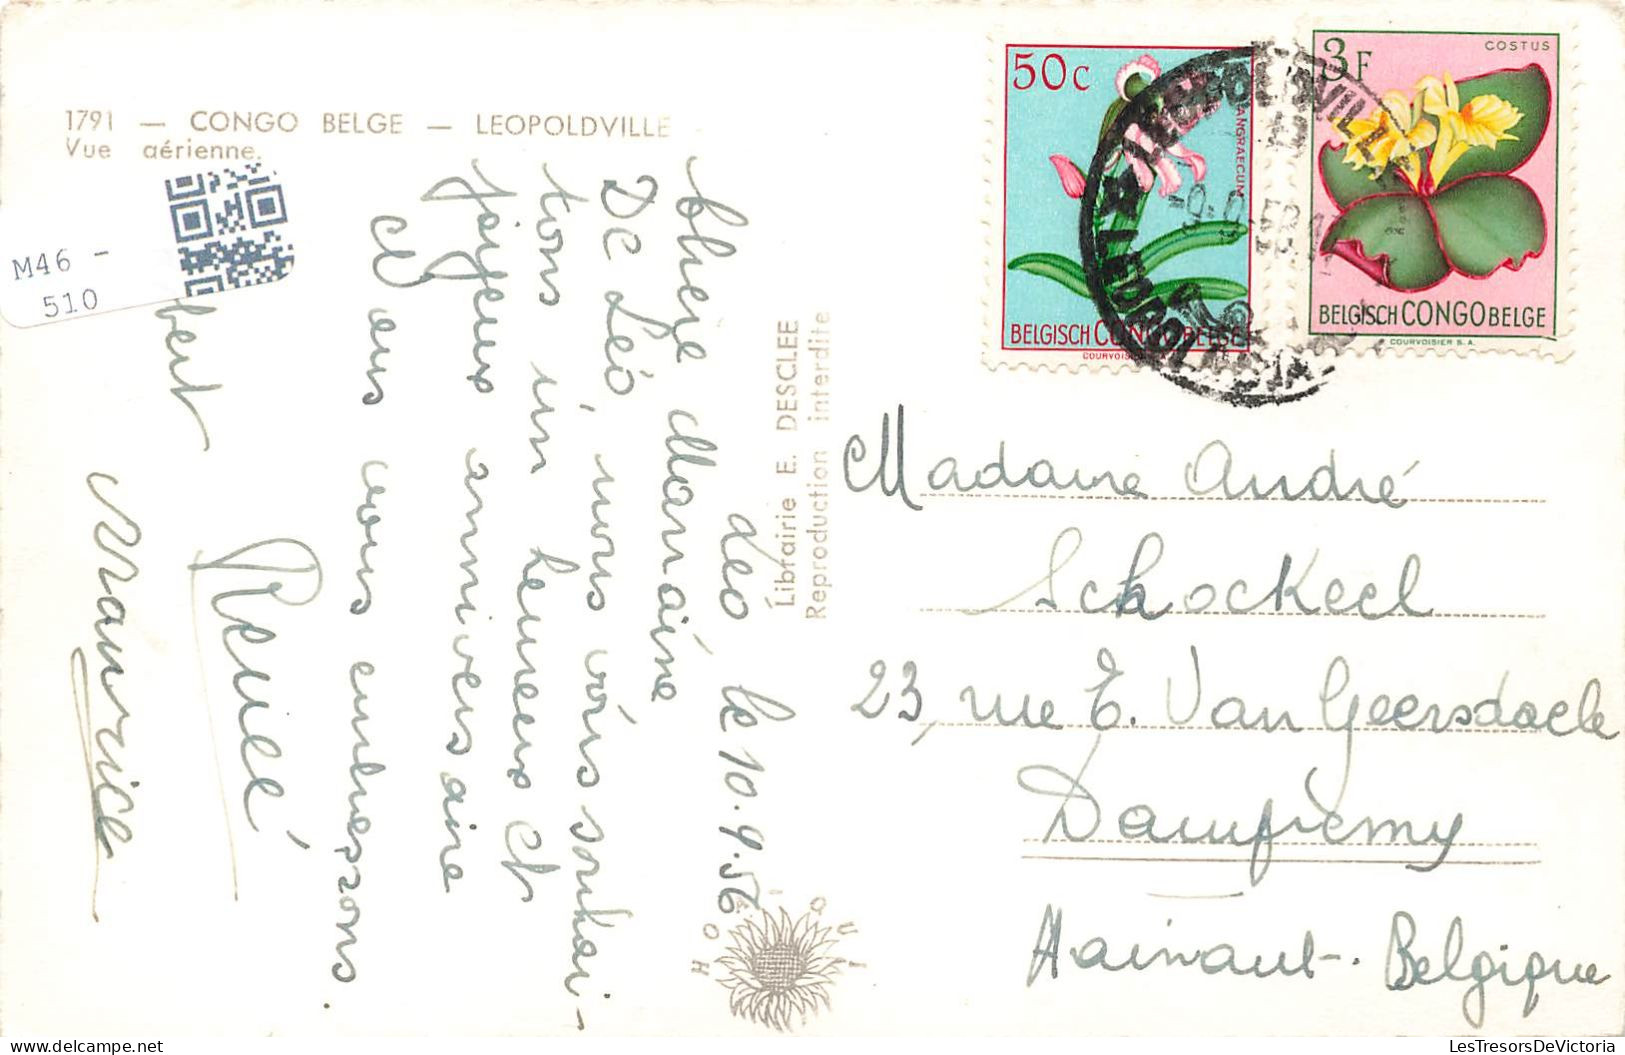 1791 — CONGO BELGE — LEOPOLDVILLE
Vue aérienne.
M46 -
510
Léo le 10.9.56
Chère Marraine
De Léo, nous vous souhai-
tons un heureux et
joyeux anniversaire
et ous vous embrassons.
bert
Renée
Maurice
Librairie E. DESCLEE
Reproduction interdite
50c
ANGRAECUM
BELGISCH CONGO BELGE
COURVOISIER S.A.
3F
COSTUS
BELGISCH CONGO BELGE
COURVOISIER S.A.
LEOPOLDVILLE
LEOPOLD
Madame André
Schockeel
23, rue E. Van Geersdaele
Dampremy
Hainaut-. Belgique
LesTresorsDeVictoria